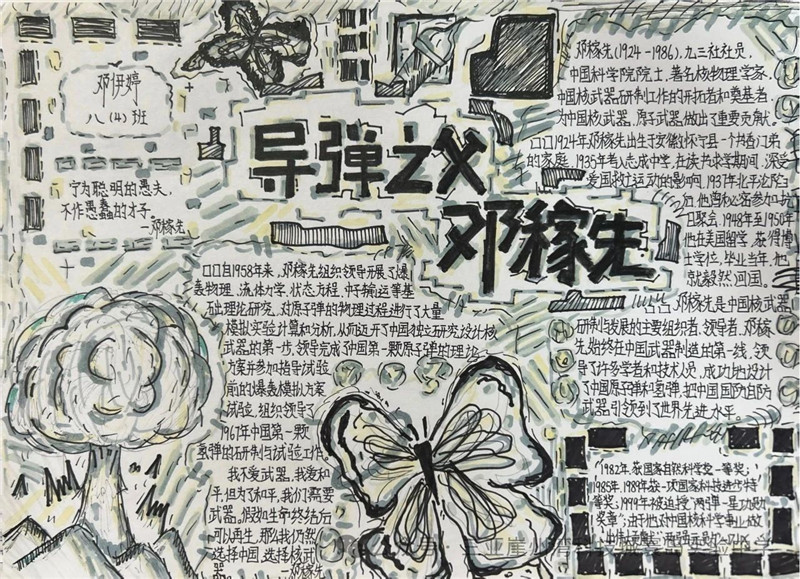 邓伊婷
八（4）班
宁为聪明的愚夫，
不作愚蠢的才子。
—邓稼先
导弹之父
邓稼先
邓稼先（1924-1986），九三社社员，
中国科学院院士，著名核物理学家，
中国核武器研制工作的开拓者和奠基者，
为中国核武器，原子武器，做出了重要贡献。
口口1924年邓稼先出生于安徽怀宁县一个书香门弟
的家庭，1935年考入志成中学，在读书求学期间，深受
爱国救亡运动的影响，1937年北平沦陷
后他曾秘密参加抗
日聚会，1948年至1950年
他在美国留学，获得博
士学位，毕业当年，他
就毅然回国。
邓稼先是中国核武器
研制与发展的主要组织者，领导者，邓稼
先始终在中国武器制造的第一线，领
导了许多学者和技术人员，成功地设计
了中国原子弹和氢弹，把中国国防自防
武器引领到了世界先进水平。
口口自1958年来，邓稼先组织领导开展了爆
轰物理、流体力学、状态方程，中子输运等基
础理论研究，对原子弹的物理过程进行了大量
模拟实验计算和分析，从而迈开了中国独立研究设计核
武器的第一步，领导完成了中国第一颗原子弹的理论
方案并参加指导试验
前的爆轰模拟方案
试验，组织领导了
1967年中国第一颗
氢弹的研制与试验工作。
我不爱武器，我爱和
平，但为了和平，我们需要
武器。假如生命终结后
可以再生，那么我仍然
选择中国，选择核
邓稼先
"1982年获国家自然科学奖一等奖；
1985年，1989年获一次国家科技进步特
等奖；1999年被追授"两弹一星功勋
奖章"；由于他对中国核科学事业做